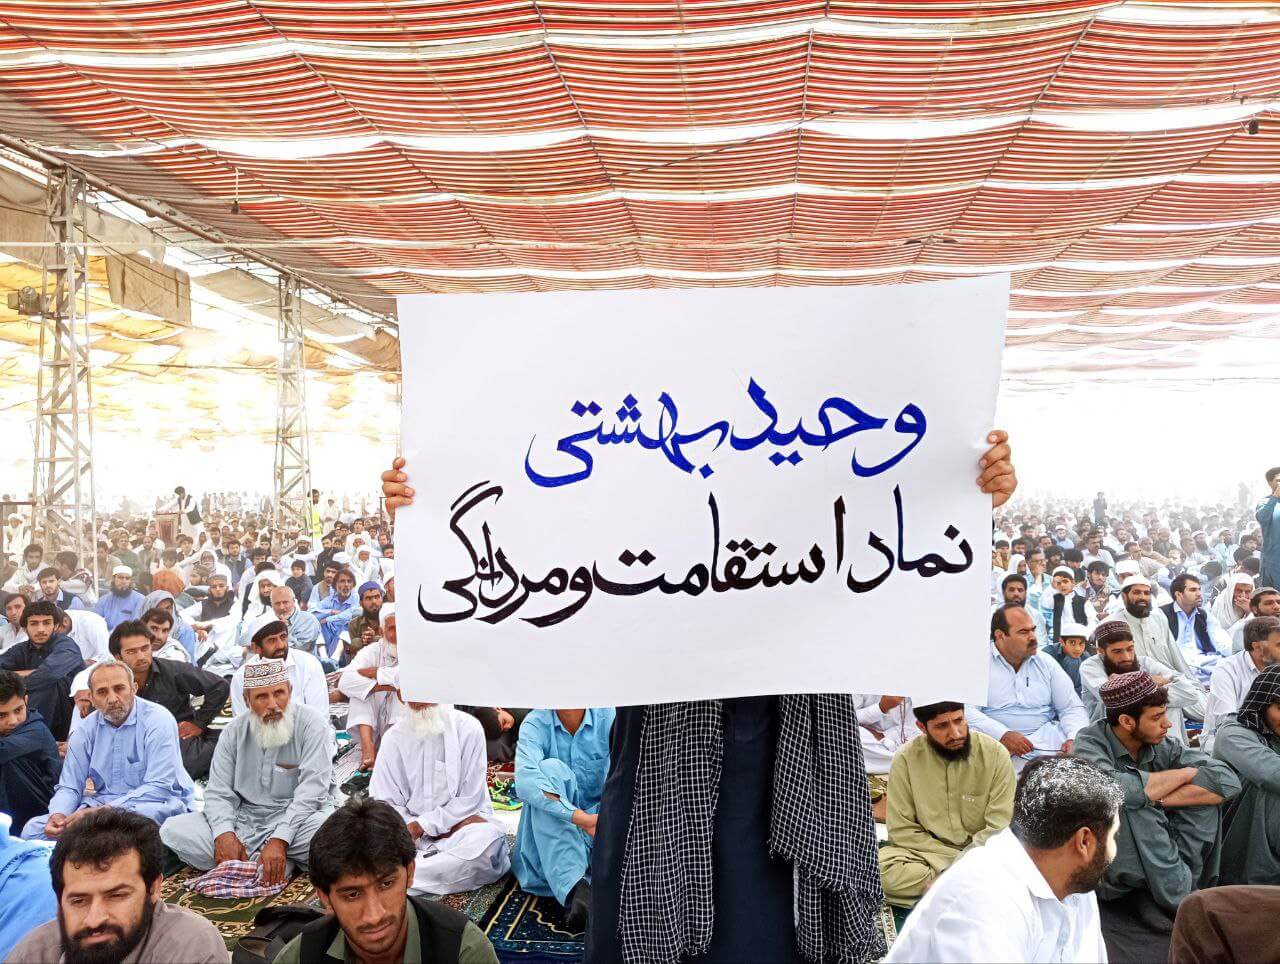 وحید بهشتی
نماد استقامت و مردانگی